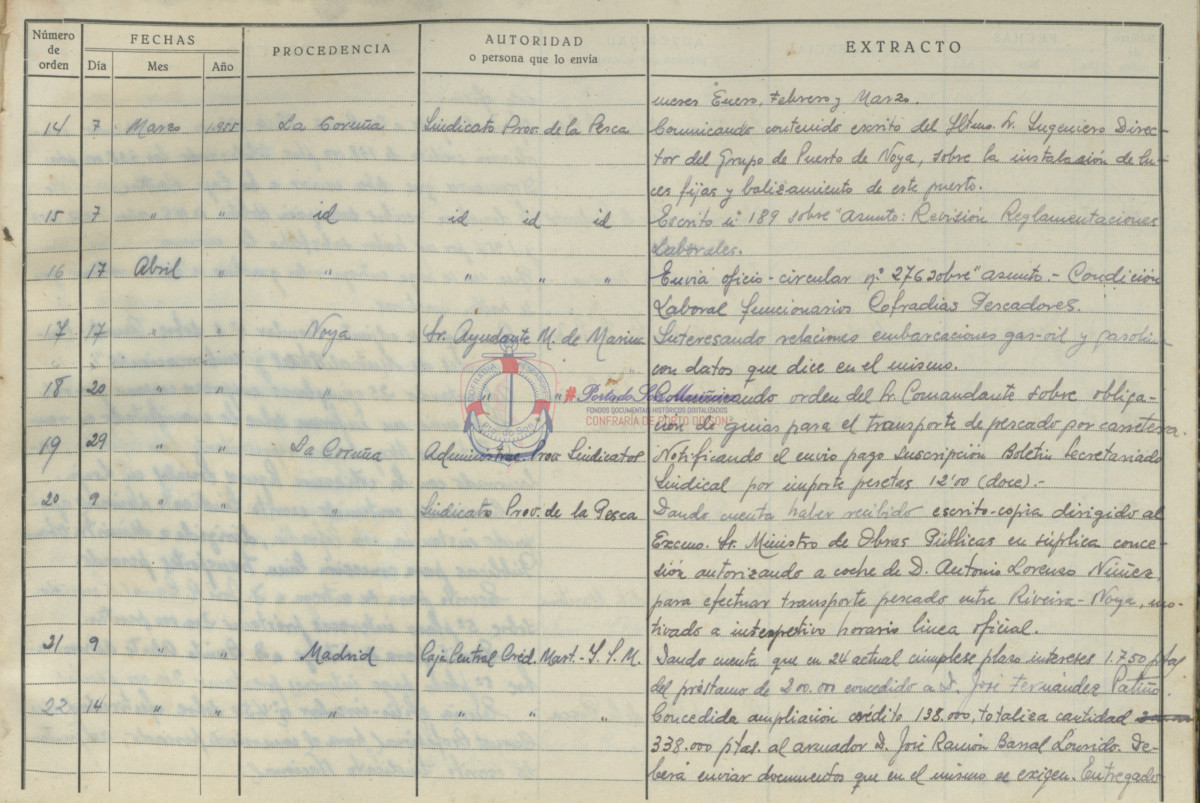 Número de orden FECHAS Día Mes Año PROCEDENCIA AUTORIDAD o persona que lo envía EXTRACTO
meses Enero, Febrero y Marzo.
14 7 Marzo 1955 La Coruña Sindicato Prov. de la Pesca Comunicando contenido escrito del Iltmo. Sr. Ingeniero Direc-
tor del Grupo de Puerto de Noya, sobre la instalación de lu-
ces fijas y balizamiento de este puerto.
15 7 " " id id id id Escrito nº 189 sobre "asunto: Revisión Reglamentaciones
Laborales.
16 17 Abril " " " " " Envia oficio-circular nº 276 sobre "asunto.- Condición
Laboral funcionarios Cofradias Pescadores.
17 17 " " Noya Sr. Ayudante M. de Marina Interesando relaciones embarcaciones gas-oil y gasolina
con datos que dice en el mismo.
18 20 " " " " " orden del Sr. Comandante sobre obliga-
ción de guias para el transporte de pescado por carretera.
19 29 " " La Coruña Administrac. Prov. Sindicatos Notificando el envio pago Suscripción Boletin Secretariado
Sindical por importe pesetas 12'00 (doce).-
20 9 " " " Sindicato Prov. de la Pesca Dando cuenta haber recibido escrito-copia dirigido al
Excmo. Sr. Ministro de Obras Públicas en súplica conce-
sión autorizando a coche de D. Antonio Lorenzo Núñez
para efectuar transporte pescado entre Riveira-Noya, mo-
tivado a horario linea oficial.
21 9 " " Madrid Caja Central Créd. Mart.- S. S. M. Dando cuenta que en 24 actual cumplese plazo intereses 1.750 ptas
del préstamo de 200.000 concedido a D. José Fernández Patiño.
22 14 " " " " " " Concedida ampliación crédito 138.000, totaliza cantidad
338.000 ptas. al armador D. José Ramón Barral Lourido. De-
berá enviar documentos que en el mismo se exigen. Entregado
CONFRARÍA
Porto do Son
# Portodo Son Mariñeiro
FONDOS DOCUMENTAIS HISTÓRICOS DIXITALIZADOS
CONFRARÍA DE PORTO DO SON